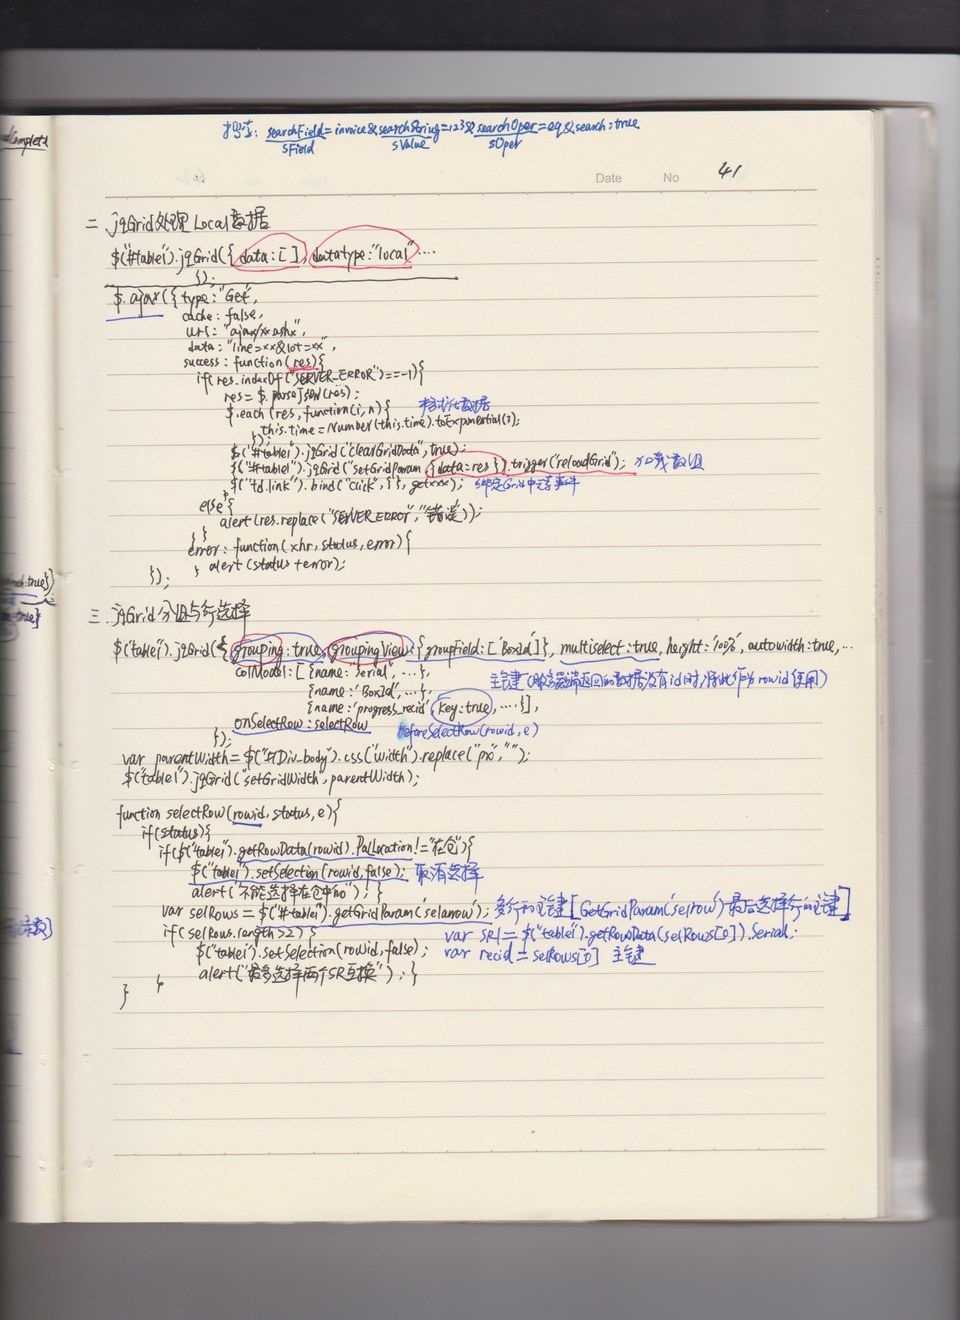 searchField=invoice&searchString=123&searchOper=eq&search:true
sField sValue sOper
Date No 41
二. jqGrid处理Local数据
$("#table1").jqGrid({ data:[ ], datatype:"local"....
});
$.ajax({ type:"Get",
cache:false,
url:"ajax/xx.ashx",
data:"line=xx&lot=xx",
success:function(res){
if(res.indexOf("SERVER_ERROR")==-1){
res=$.parseJSON(res);
$.each(res,function(i,n){ 格式化数据
this.time=Number(this.time).toExponential(3);
});
$("#table1").jqGrid("clearGridData",true);
$("#table1").jqGrid("setGridParam",{data:res}).trigger("reloadGrid"); 加载数组
$("td.link").bind("click",{ },getxxx); 绑定Grid中点击事件
}
else{
alert(res.replace("SERVER_ERROR","错误"));
} }
error:function(xhr,status,error){
alert(status+error);
}
});
三. jqGrid分组与行选择
$("table1").jqGrid({ grouping:true, groupingView:{groupField:['BoxId']}, multiselect:true, height:'100%', autowidth:true,...
colModel:[{name:'Serial',...}, 主键(服务器端返回的数据没有id时,将此作为rowid使用)
{name:'BoxId',...},
{name:'progress_recid',key:true,....}],
onSelectRow:selectRow beforeSelectRow(rowid,e)
});
var parentWidth=$("#Div-body").css("width").replace("px","");
$("table1").jqGrid("setGridWidth",parentWidth);
function selectRow(rowid,status,e){
if(status){
if($("table1").getRowData(rowid).PalLocation!="在仓"){
$("table1").setSelection(rowid,false); 取消选择
alert("不能选择在仓中的"); }
var selRows=$("#table1").getGridParam('selarrow'); 多行的主键[GetGridParam('selrow')最后选择行的主键]
if(selRows.length>2){ var SR1=$("table1").getRowData(selRows[0]).Serial;
$("table1").setSelection(rowid,false); var recid=selRows[0] 主键
alert("最多选择两个SR互换"); }
}
}